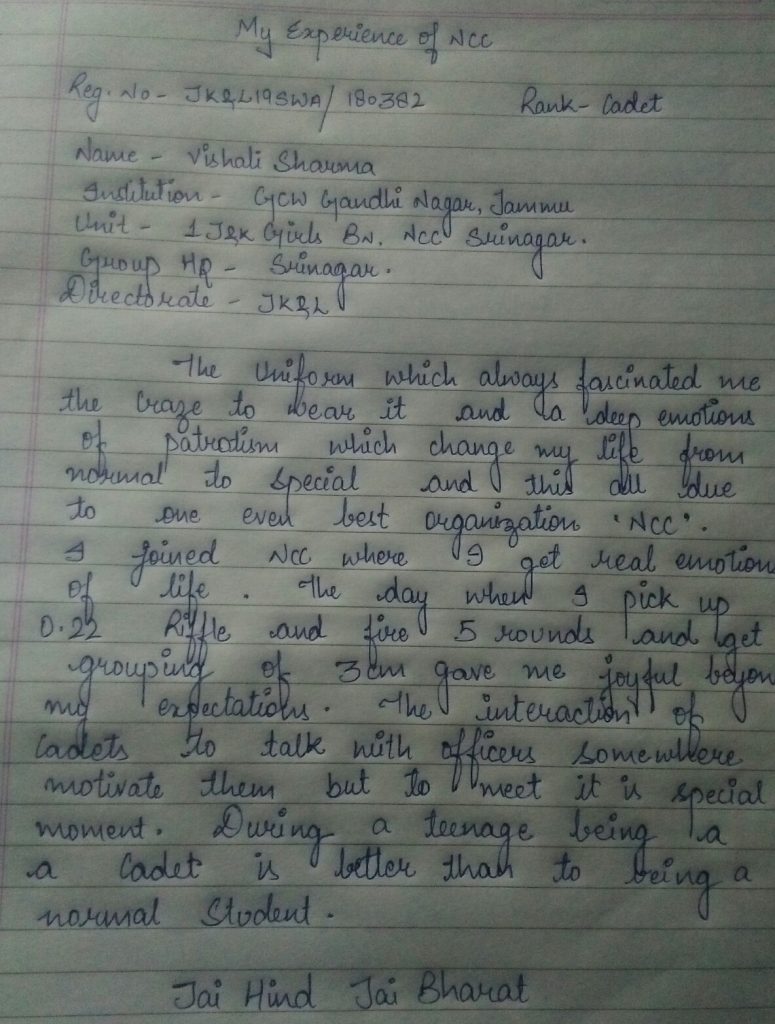 My Experience of NCC
Reg. No - JK&L19SWA/180382 Rank - Cadet
Name - Vishali Sharma
Institution - GCW Gandhi Nagar, Jammu
Unit - 1 J&K Girls BN. NCC Srinagar.
Group HQ - Srinagar.
Directorate - JK&L
The Uniform which always fascinated me
the craze to wear it and a deep emotions
of patrotism which change my life from
normal to special and this all due
to one even best organization 'NCC'.
I joined NCC where I get real emotion
of life. The day when I pick up
0.22 Riffle and fire 5 rounds and get
grouping of 3cm gave me joyful beyon
my expectations. The interaction of
Cadets to talk with officers somewhere
motivate them but to meet it is special
moment. During a teenage being a
a Cadet is better than to being a
normal Student.
Jai Hind Jai Bharat